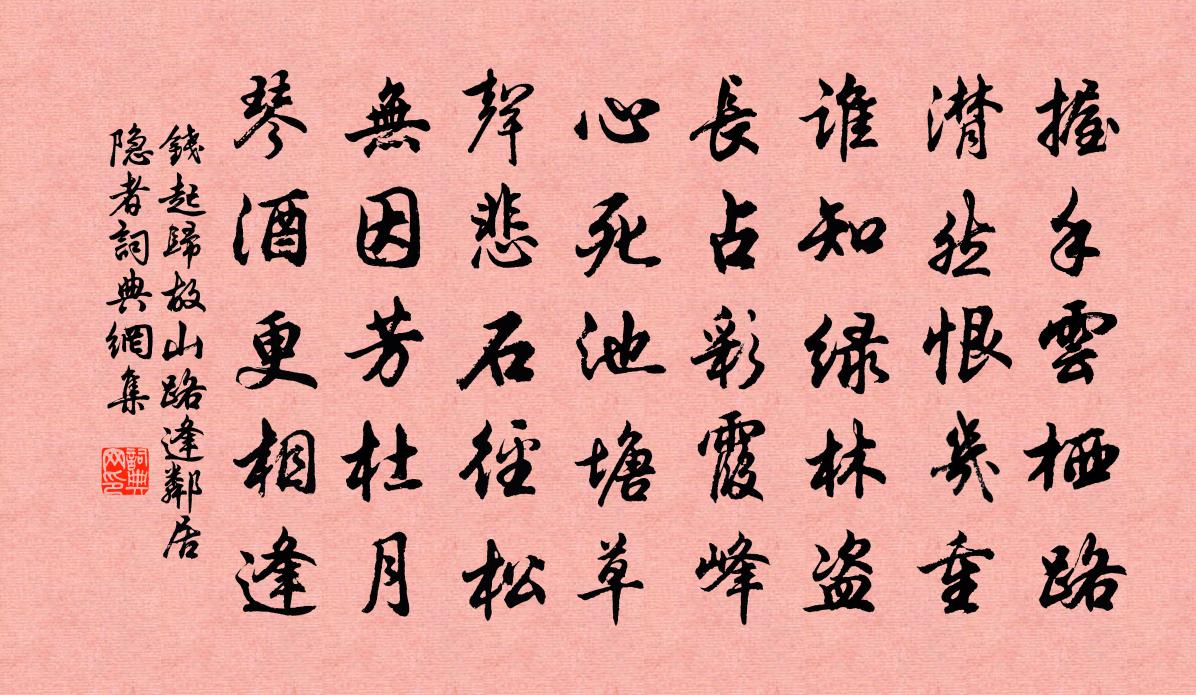 握手雲栖路
潸然恨幾重
誰知綠林盜
長占彩霞峰
心死池塘草
聲悲石徑松
無因芳杜月
琴酒更相逢
錢起歸故山路逢鄰居
隐者詞典網集
詞典網印